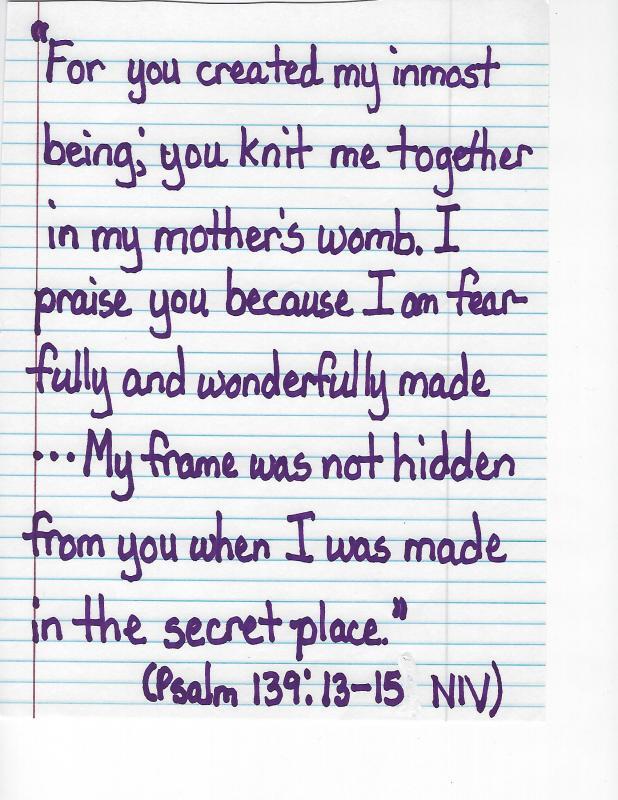 "For you created my inmost
being; you knit me together
in my mother's womb. I
praise you because I am fear-
fully and wonderfully made
...My frame was not hidden
from you when I was made
in the secret place."
(Psalm 139:13-15 NIV)